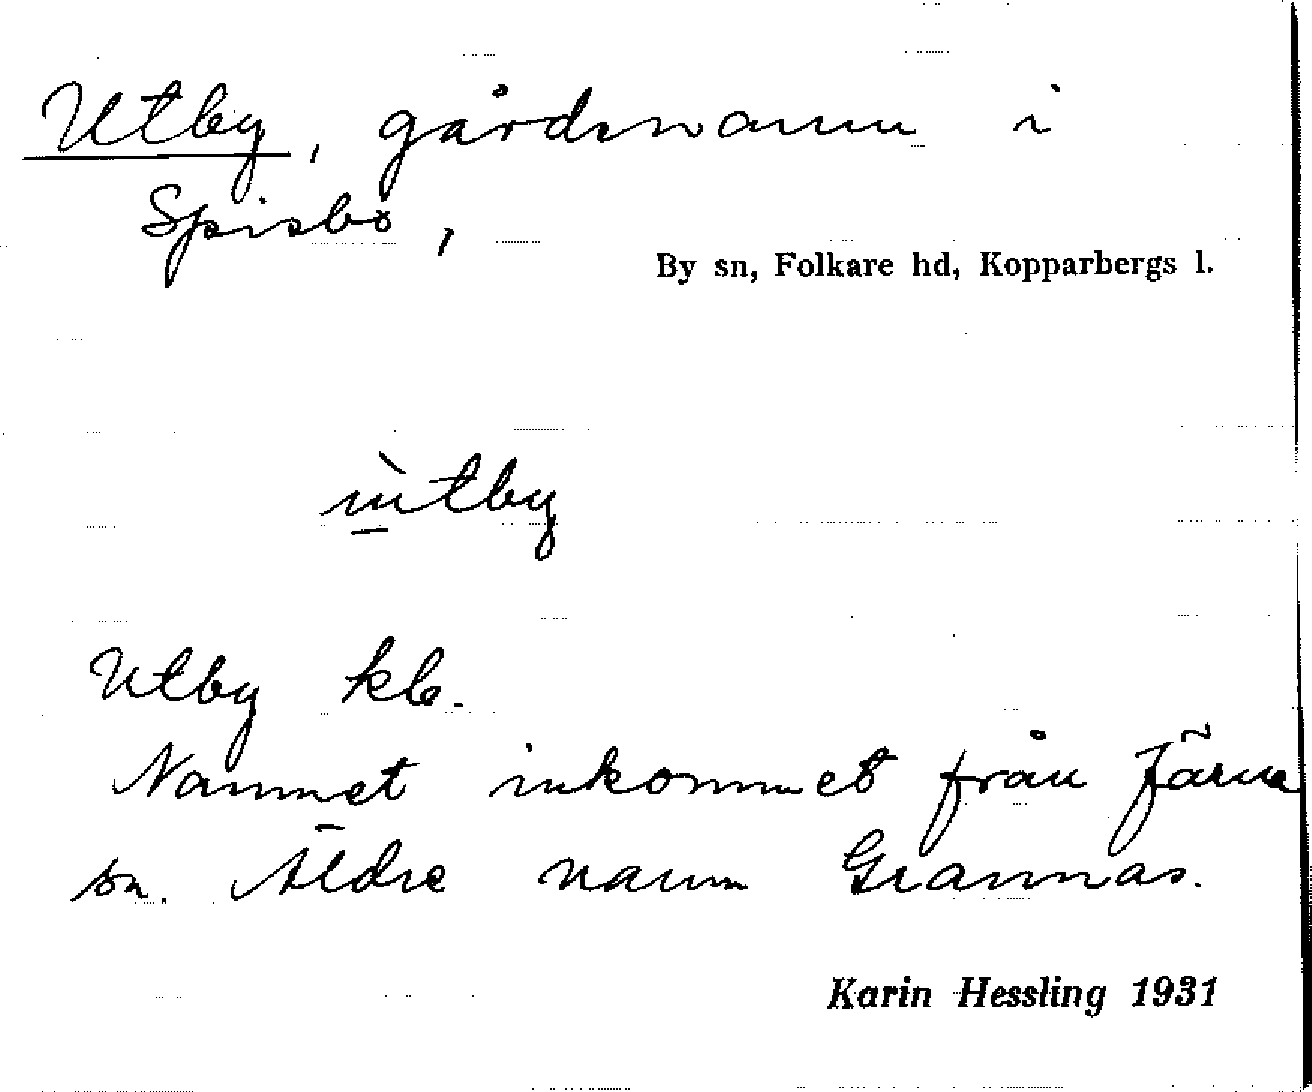 Utby, gårdsnamn i
Spisbo,
By sn, Folkare hd, Kopparbergs l.
ùtby
Utby kb.
Namnet inkommet från Järna
sn. Äldre namn Grannas.
Karin Hessling 1931